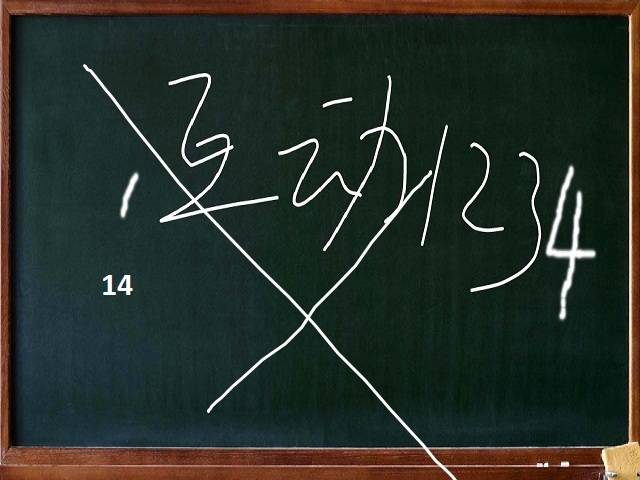 互动1234
14